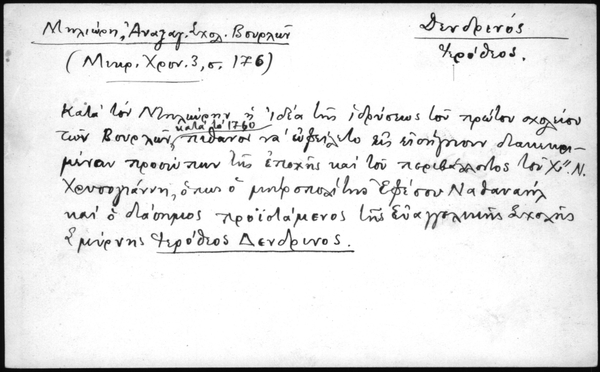 Μηλιώρη, Ἀναγαγ. Σχολ. Βουρλῶν
(Μικρ. Χρον. 3, σ. 176)
Δενδρινός
Ἱερόθεος.
Κατὰ τὸν Μηλιώρην ἡ ἰδέα τῆς ἱδρύσεως τοῦ πρώτου σχολείου
τῶν Βουρλῶν, κατὰ τὸ 1760 πιθανὸν νὰ ὠφείλετο εἰς εἰσήγησιν διακεκρι-
μένων προσώπων τῆς ἐποχῆς καὶ τοῦ περιβάλλοντος τοῦ Χ" Ν.
Χρυσογιάννη, ὅπως ὁ μητροπολίτης Ἐφέσου Ναθαναὴλ
καὶ ὁ διάσημος προϊστάμενος τῆς Εὐαγγελικῆς Σχολῆς
Σμύρνης Ἱερόθεος Δενδρινός.